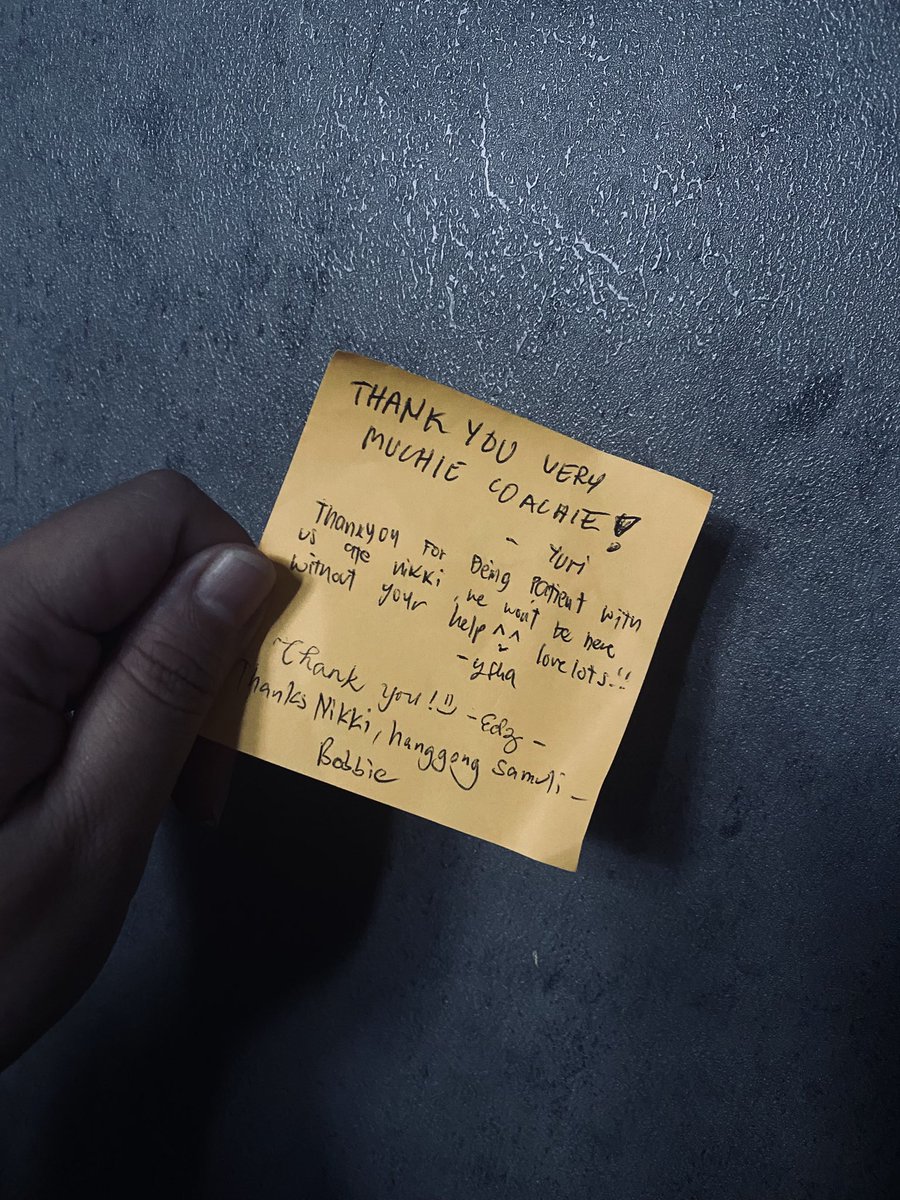 THANK YOU VERY
MUCHIE COACHIE!
- Yuri
Thankyou For Being Patient with
us ate nikki, we won't be here
without your help ^^ love lots!!
- ysha
~Thank you! :) - Edz -
Thanks Nikki, hanggang sa muli -
Bobbie